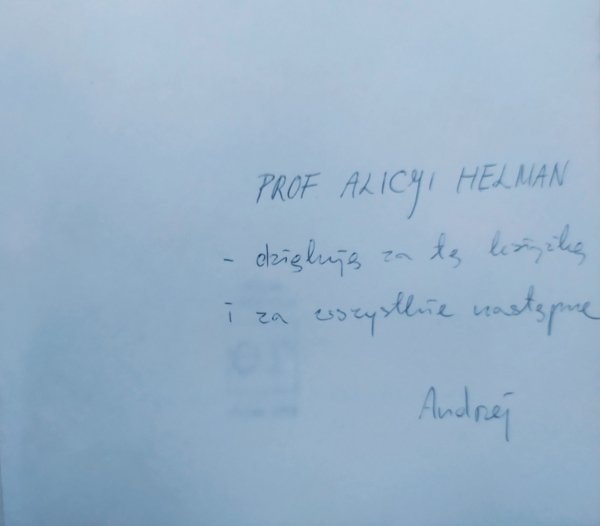 PROF ALICYI HELMAN
- dziękuję za tę książkę
i za wszystkie następne
Andrzej